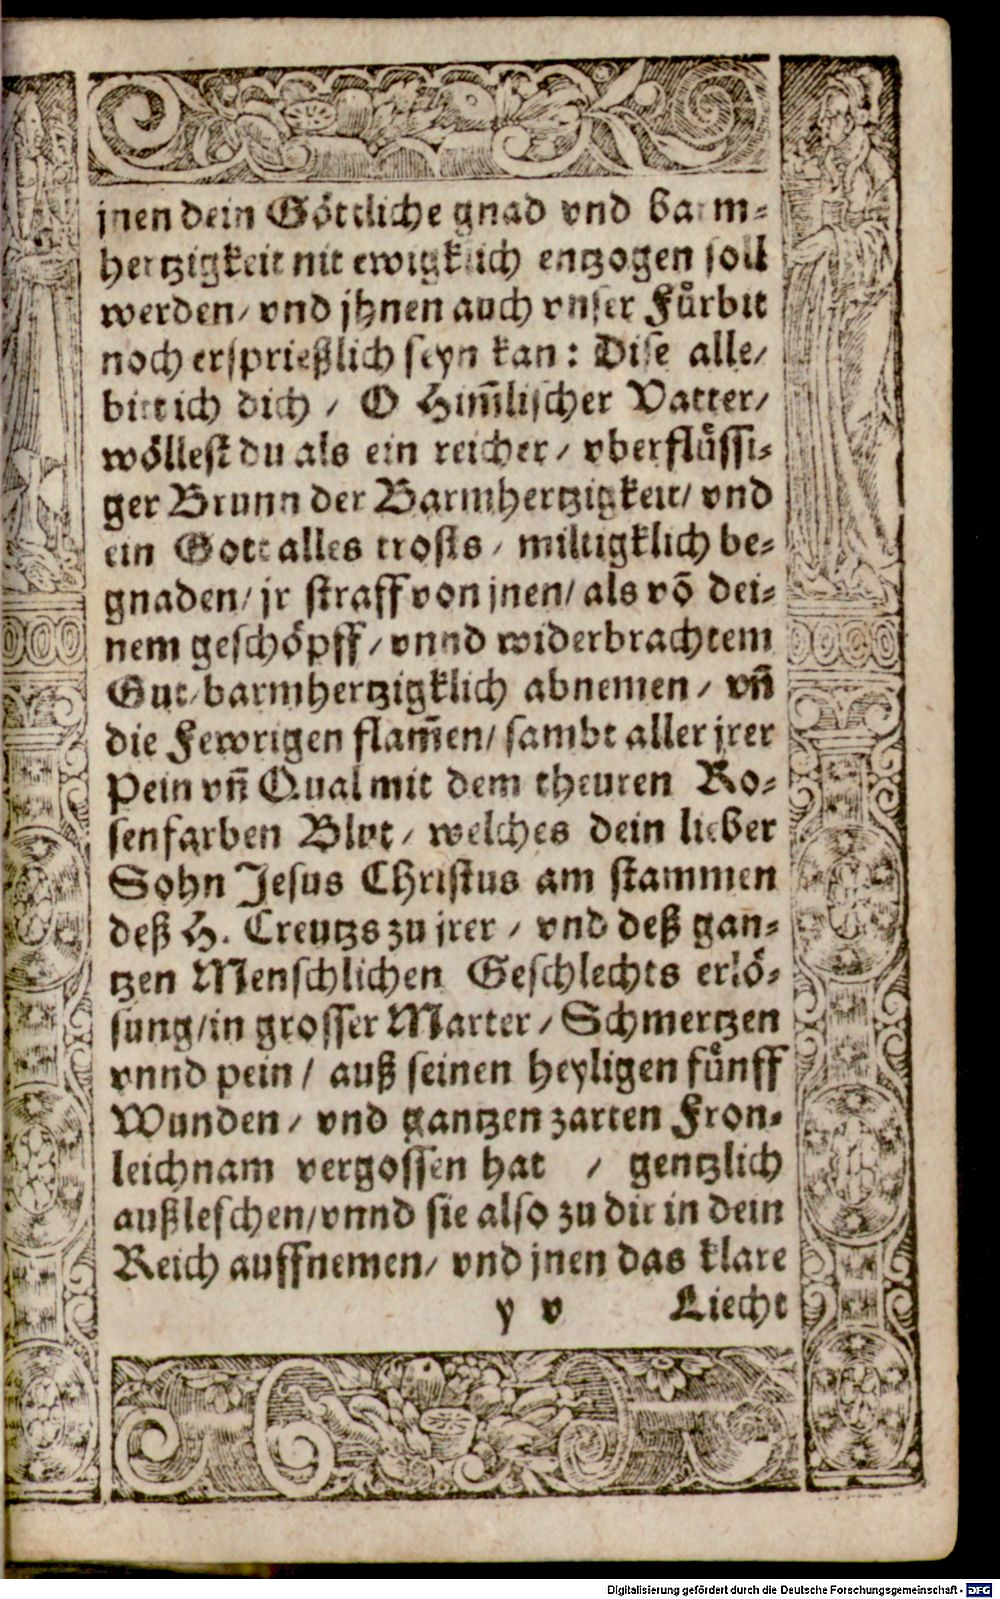 jnen dein Göttliche gnad vnd barm⸗
hertzigkeit nit ewigklich entzogen soll
werden/ vnd jhnen auch vnser Fuͤrbit
noch ersprießlich seyn kan: Dise alle/
bitt ich dich / O Him̃lischer Vatter/
woͤllest du als ein reicher / vberfluͤssi⸗
ger Brunn der Barmhertzigkeit/ vnd
ein Gott alles trosts / miltigklich be⸗
gnaden/ jr straff von jnen/ als võ dei⸗
nem geschöpff / vnnd widerbrachtem
Gut/ barmhertzigklich abnemen / vñ
die Fewrigen flam̃en/ sambt aller jrer
Pein vñ Qual mit dem theuren Ro⸗
senfarben Blut / welches dein lieber
Sohn Jesus Christus am stammen
deß H. Creutzs zu jrer / vnd deß gan⸗
tzen Menschlichen Geschlechts erlö⸗
sung/ in grosser Marter / Schmertzen
vnnd pein / auß seinen heyligen fuͤnff
Wunden / vnd gantzen zarten Fron⸗
leichnam vergossen hat / gentzlich
außleschen/ vnnd sie also zu dir in dein
Reich auffnemen/ vnd jnen das klare
y v Liecht
Digitalisierung gefördert durch die Deutsche Forschungsgemeinschaft - DFG